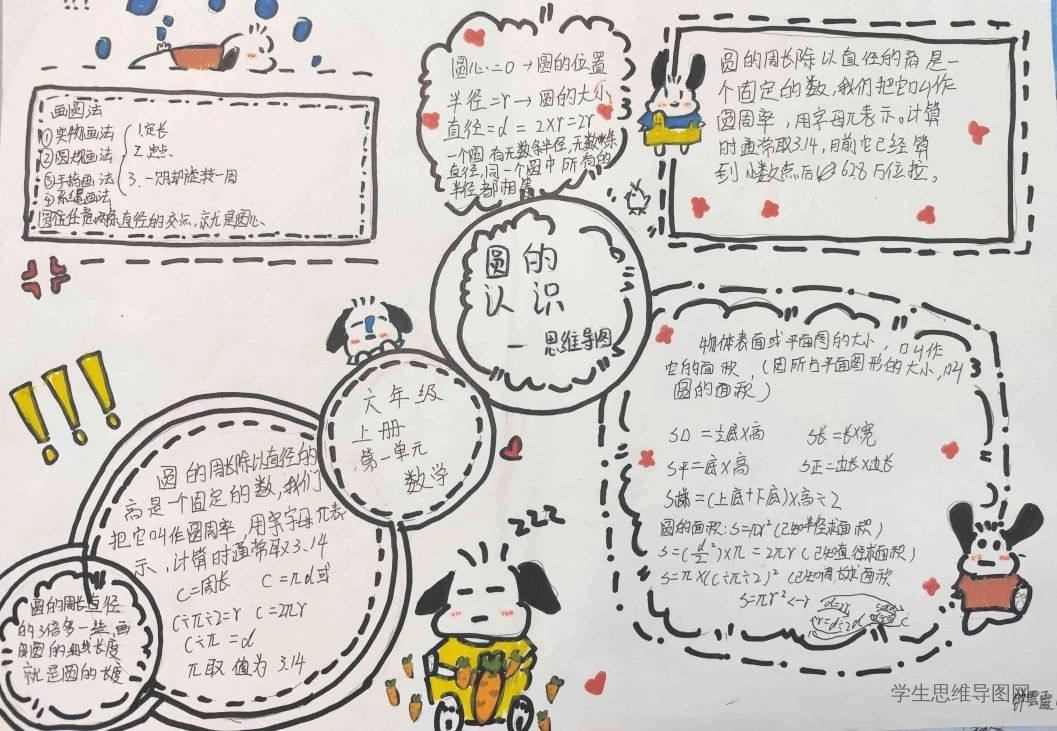 画圆法
①实物画法
②圆规画法
③手指画法
④系绳画法
1.定长
2.定点
3.一只脚旋转一周
圆任任意两条直径的交点,就是圆心、
圆心=O→圆的位置
半径=r→圆的大小
直径=d=2×r=2r
一个圆有无数条半径,无数条
直径,同一个圆中所有的
半径都相等
圆的周长除以直径的商是一
个固定的数,我们把它叫作
圆周率,用字母π表示。计算
时通常取3.14,目前它已经算
到小数点后 628万位拉。
圆的
认识
一 思维导图
六年级
上册
第一单元
数学
圆的周长除以直径的
商是一个固定的数,我们
把它叫作圆周率,用字字母π表
示,计算时通常取3.14
C=周长 C=πd或
C÷π÷2=r C=2πr
C÷π=d
π取值为3.14
圆的周长直径
的3倍多一些,画
圆的曲线长度
就是圆的长度
物体表面或平面图的大小,叫作
它的面积,(因所占平面图形的大小,叫
圆的面积)
S=底×高 S长=长×宽
S平=底×高 S正=边长×边长
S梯=(上底+下底)×高÷2
圆的面积:S=πr²(已知半径求面积)
S=( )×π=2πr(已知直径求面积)
S=π×(C÷π÷2)²(已知周长求面积
S=πr²<-r
d=2r
r=d÷2d
C
zzz
学生思维导图网